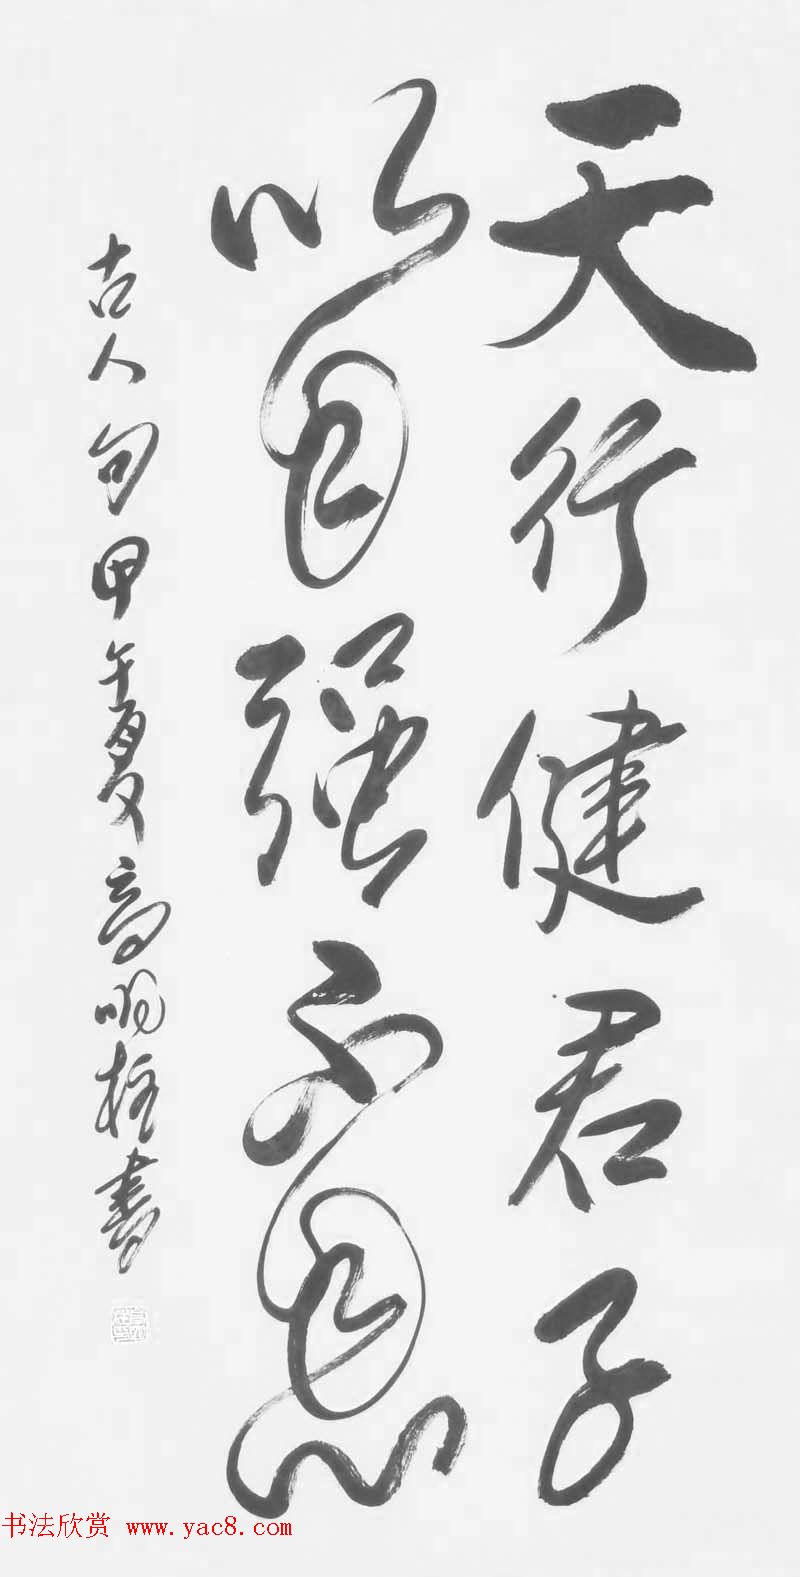 天行健君子
以自强不息
古人句甲午夏高明柱书
书法欣赏 www.yac8.com